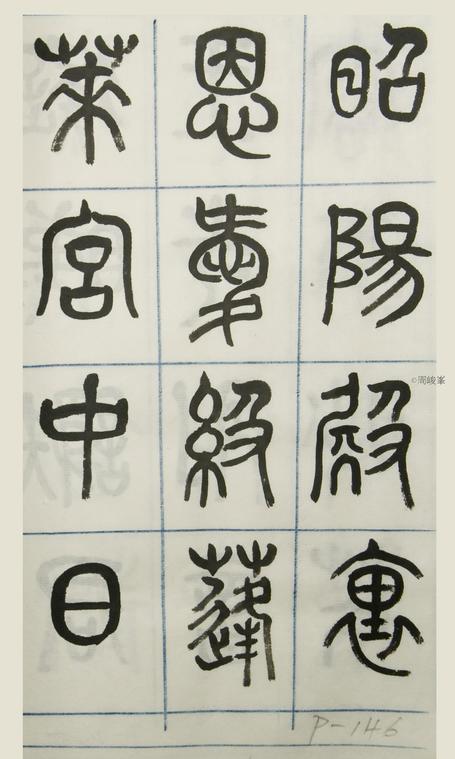 昭陽殿裏
恩愛絕蓬
萊宮中日
©周峻峯
P-146